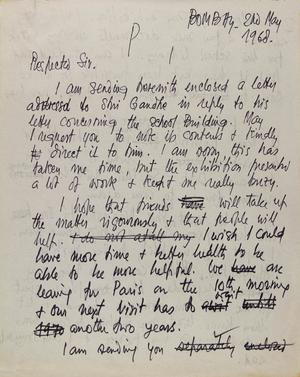 BOMBAY. 2nd May
1968.
P 1
Respected Sir.
I am sending herewith enclosed a letter
addressed to Shri Gandhi in reply to his
letter concerning the school building. May
I request you to note its contents & kindly
to direct it to him. I am sorry this has
taken me time, but the exhibition presented
a lot of work & kept me really busy.
I hope that friends will take up
the matter vigorously & that people will
help. I do not atall my I wish I could
have more time & better health to be
able to be more helpful. We have are
leaving for Paris on the 10th morning
& our next visit has to wait
another two years.
I am sending you separately enclosed